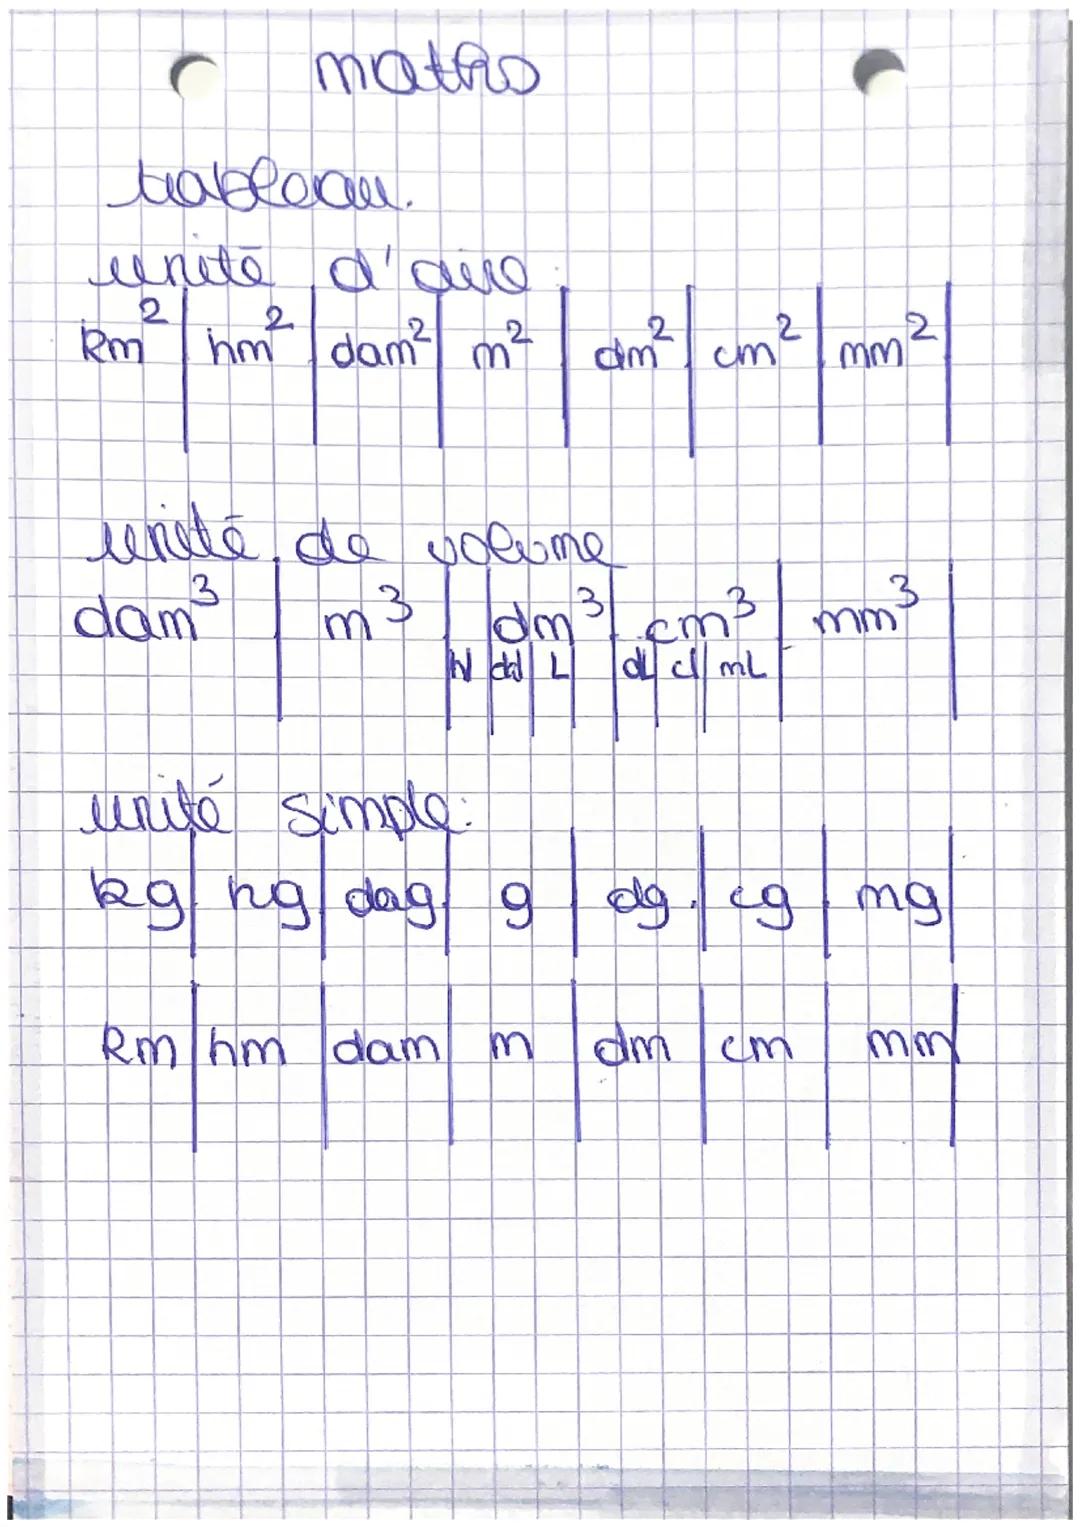 maths
tableau.
unité d'aire :
km² | hm² | dam² | m² | dm² | cm² | mm² |
unité de volume
dam³ | m³ | dm³ | cm³ | mm³ |
hl | dal | L | dL | cl | mL
unité simple :
kg | hg | dag | g | dg | cg | mg |
km | hm | dam | m | dm | cm | mm |